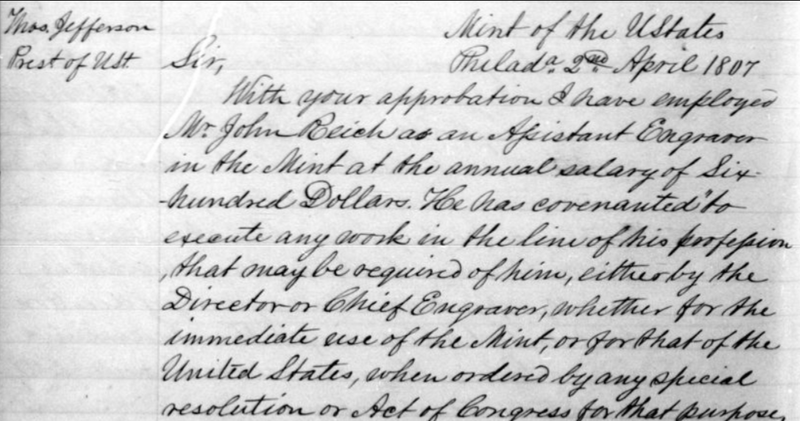 Thos. Jefferson
Prest of USt.
Mint of the UStates
Philada. 2nd April 1807
Sir,
With your approbation I have employed
Mr John Reich as an Assistant Engraver
in the Mint at the annual salary of Six-
-hundred Dollars. He has covenanted "to
execute any work in the line of his profession
, that may be required of him, either by the
Director or Chief Engraver, whether for the
immediate use of the Mint, or for that of the
United States, when ordered by any special
resolution or Act of Congress for that purpose,